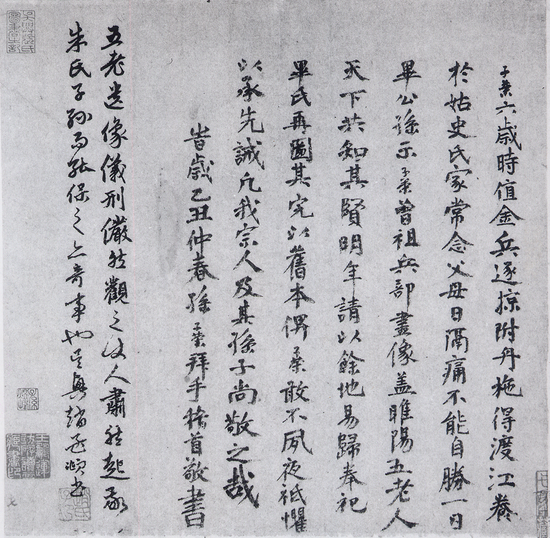 子榮六歲時值金兵逐掠附舟拖得渡江養
於姑史氏家常念父母日隔痛不能自勝一日
畢公孫示子榮曾祖兵部畫像蓋睢陽五老人
天下共知其賢明年請以餘地易歸奉祀
畢氏再圖其完以舊本俾榮敢不夙夜祗懼
以承先誠凡我宗人及其孫子尚敬之哉
旹歲乙丑仲春孫子榮拜手稽首敬書
五老遺像儀刑儼然觀之使人肅然起敬
朱氏子孫而能保之亦奇事也吳興趙孟頫書